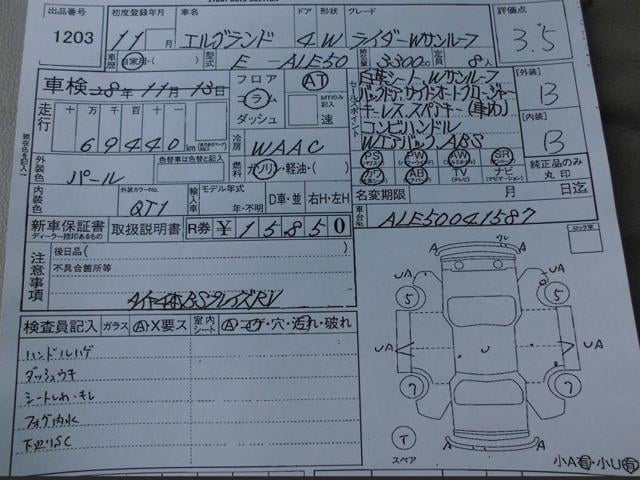 出品番号 初度登録年月 車名 ドア 形状 グレード 評価点
1203 11月 エルグランド 4 W ライダーWサンルーフ 3.5
車歴 自家用 型式 E-ALE50 排気量 3300cc 定員 8人
車検 28年11月13日 フロア AT
コラム MTのみ記入
ダッシュ 速
セールスポイント
Wサンルーフ
キーレス、スペアキー
コンビハンドル
WエアバックABS
外装 B
内装 B
走行 十万 万 千 百 十
69440km
冷房 WAAC
燃料 ガソリン・軽油・( )
外装色 パール 色替車は色替と記入
内装色 外装カラーNo. QT1
輸入車 モデル年式 年・不明 D車・並 右H・左H
PS PW AW SR
カワ AB TV ナビ
純正品のみ丸印
名変期限 月 日迄
車台No. ALE50041587
新車保証書 ディーラー捺印あるもの 取扱説明書 R券 ¥15850
ロック室
注意事項
後日品( )
不具合箇所等
タイヤ4本BSプレイズRV
検査員記入 ガラス A・X要ス 室内シート A コゲ・穴・汚れ・破れ
ハンドルハゲ
ダッシュウキ
シートしわ・キレ
フォグ内水
下廻りSC
A A
UA UA
5 5
UA U UA
7 7
A A
T
スペア
小A有・小U有